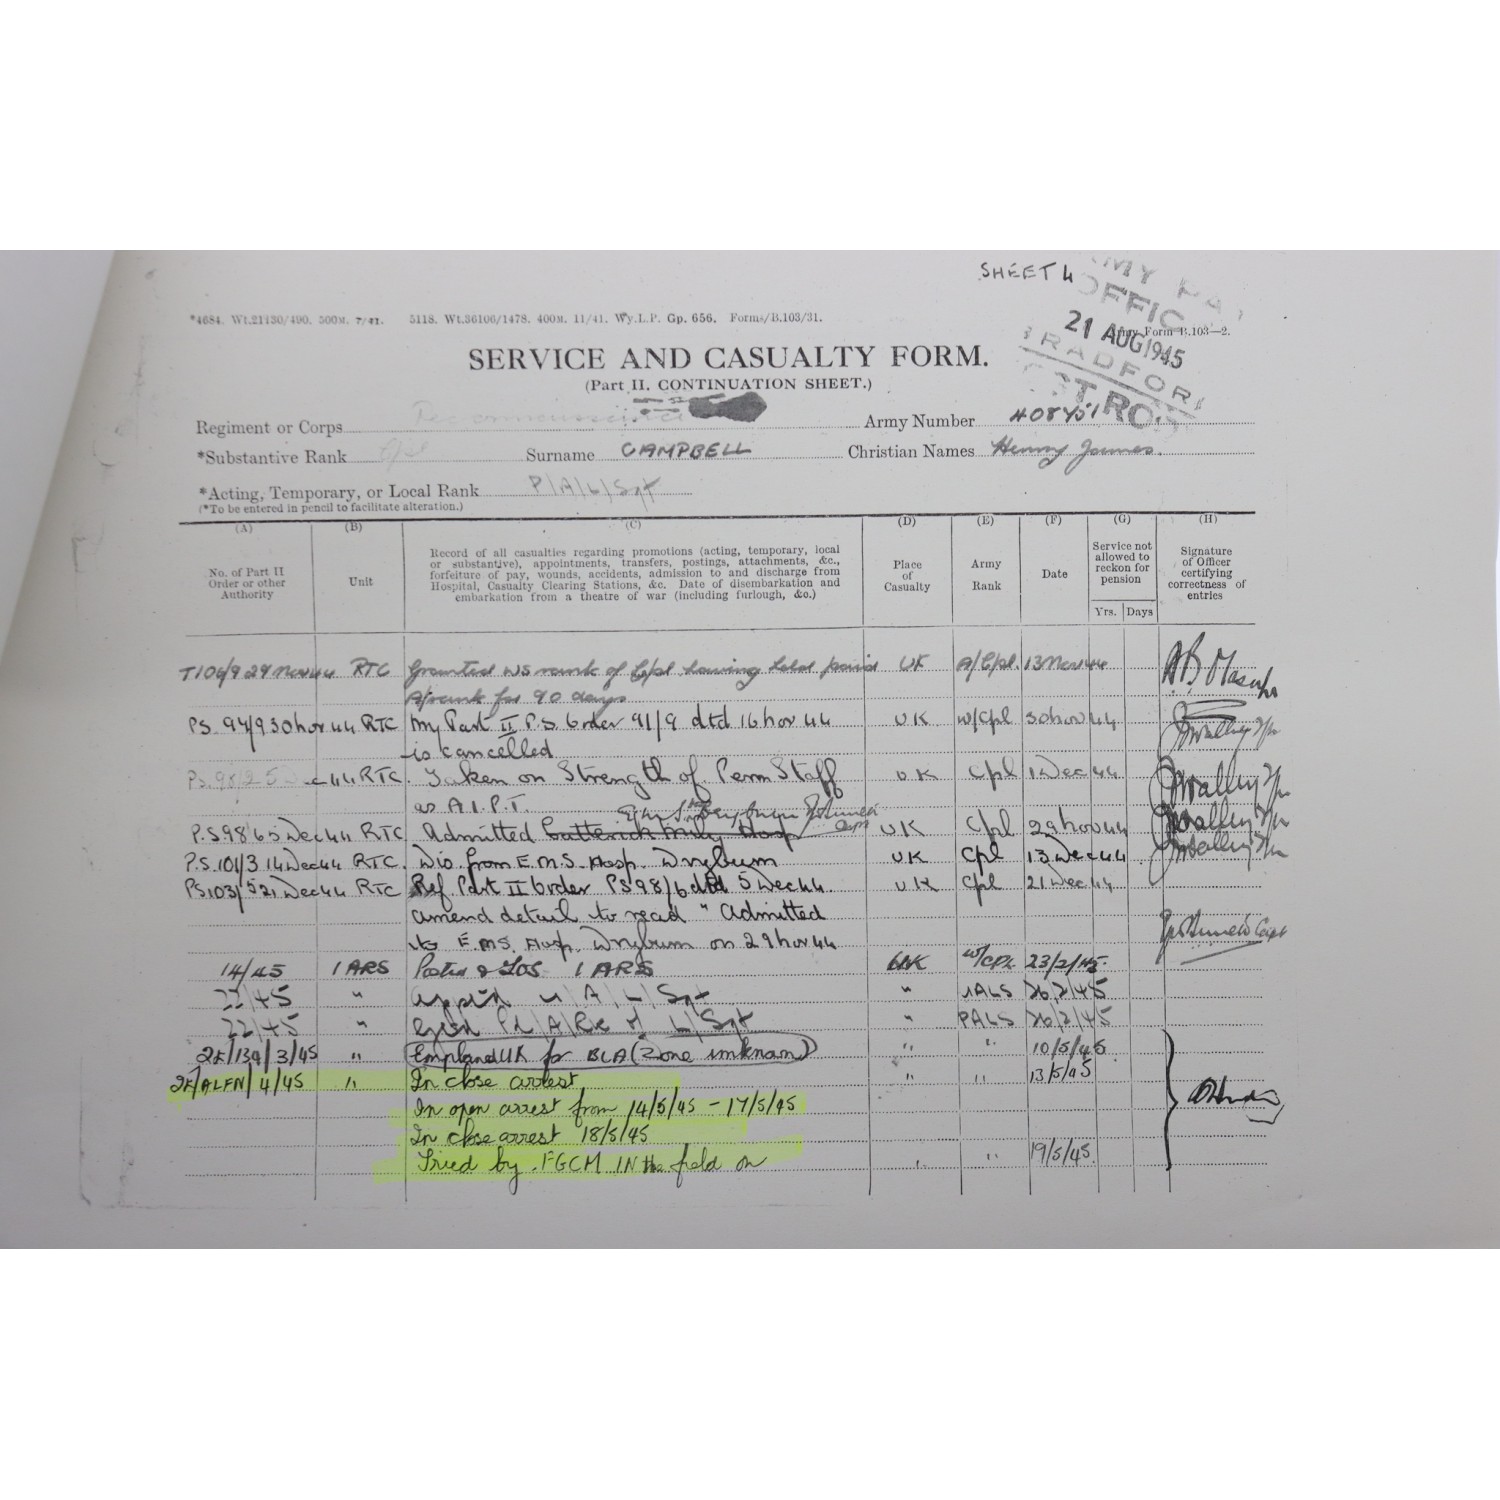 SHEET 4
ARMY PAY
OFFICE
21 AUG 1945
BRADFORD
*4684. Wt.21130/490. 500M. 7/41. 5118. Wt.36106/1478. 400M. 11/41. Wy.L.P. Gp. 656. Forms/B.103/31. Army Form B.103—2.
SERVICE AND CASUALTY FORM.
(Part II. CONTINUATION SHEET.)
Regiment or Corps Reconnaissance Army Number
*Substantive Rank Cpl Surname CAMPBELL Christian Names Henry James.
*Acting, Temporary, or Local Rank P/A/L/Sgt
(*To be entered in pencil to facilitate alteration.)
(A) (B) (C) (D) (E) (F) (G) (H)
No. of Part II Order or other Authority
Unit
Record of all casualties regarding promotions (acting, temporary, local
or substantive), appointments, transfers, postings, attachments, &c.,
forfeiture of pay, wounds, accidents, admission to and discharge from
Hospital, Casualty Clearing Stations, &c. Date of disembarkation and
embarkation from a theatre of war (including furlough, &c.)
Place of Casualty
Army Rank
Date
Service not allowed to reckon for pension
Yrs. Days
Signature of Officer certifying correctness of entries
T106/9 29 Nov 44 RTC Granted WS rank of Cpl having held paid UK A/Cpl. 13 Nov 44
A/rank for 90 days
PS. 97/9 30 Nov 44 RTC My Part II P.S. Order 91/9 dtd 16 Nov 44 UK W/Cpl 30 Nov 44
is cancelled
Dec 44 RTC. Taken on Strength of Perm Staff UK Cpl 1 Dec 44
as A.I.P.T.
P.S 98/6 5 Dec 44 RTC Admitted Catterick Mily Hosp UK Cpl 29 Nov 44
P.S. 101/3 14 Dec 44 RTC. D/o from E.M.S. Hosp. Dryburn UK Cpl 13 Dec 44
PS 103/5 21 Dec 44 RTC Ref Part II Order PS 98/6 dtd 5 Dec 44. UK Cpl 21 Dec 44
amend detail to read " Admitted
to E.M.S. Hosp. Dryburn on 29 Nov 44
14/45 1 ARS Posted & TOS 1 ARS UK W/CPL 23/2/45
22/45 " apptd u/A/L/Sgt " UALS 26/2/45
22/45 " L/Sgt " PALS 26/2/45
2E/139/3/45 " Emplaned UK for BLA (Zone unknown) " " 10/5/45
2E/ALFN/4/45 " In close arrest " " 13/5/45
In open arrest from 14/5/45 - 17/5/45
In close arrest 18/5/45
Tried by FGCM IN the field on " " 19/5/45.